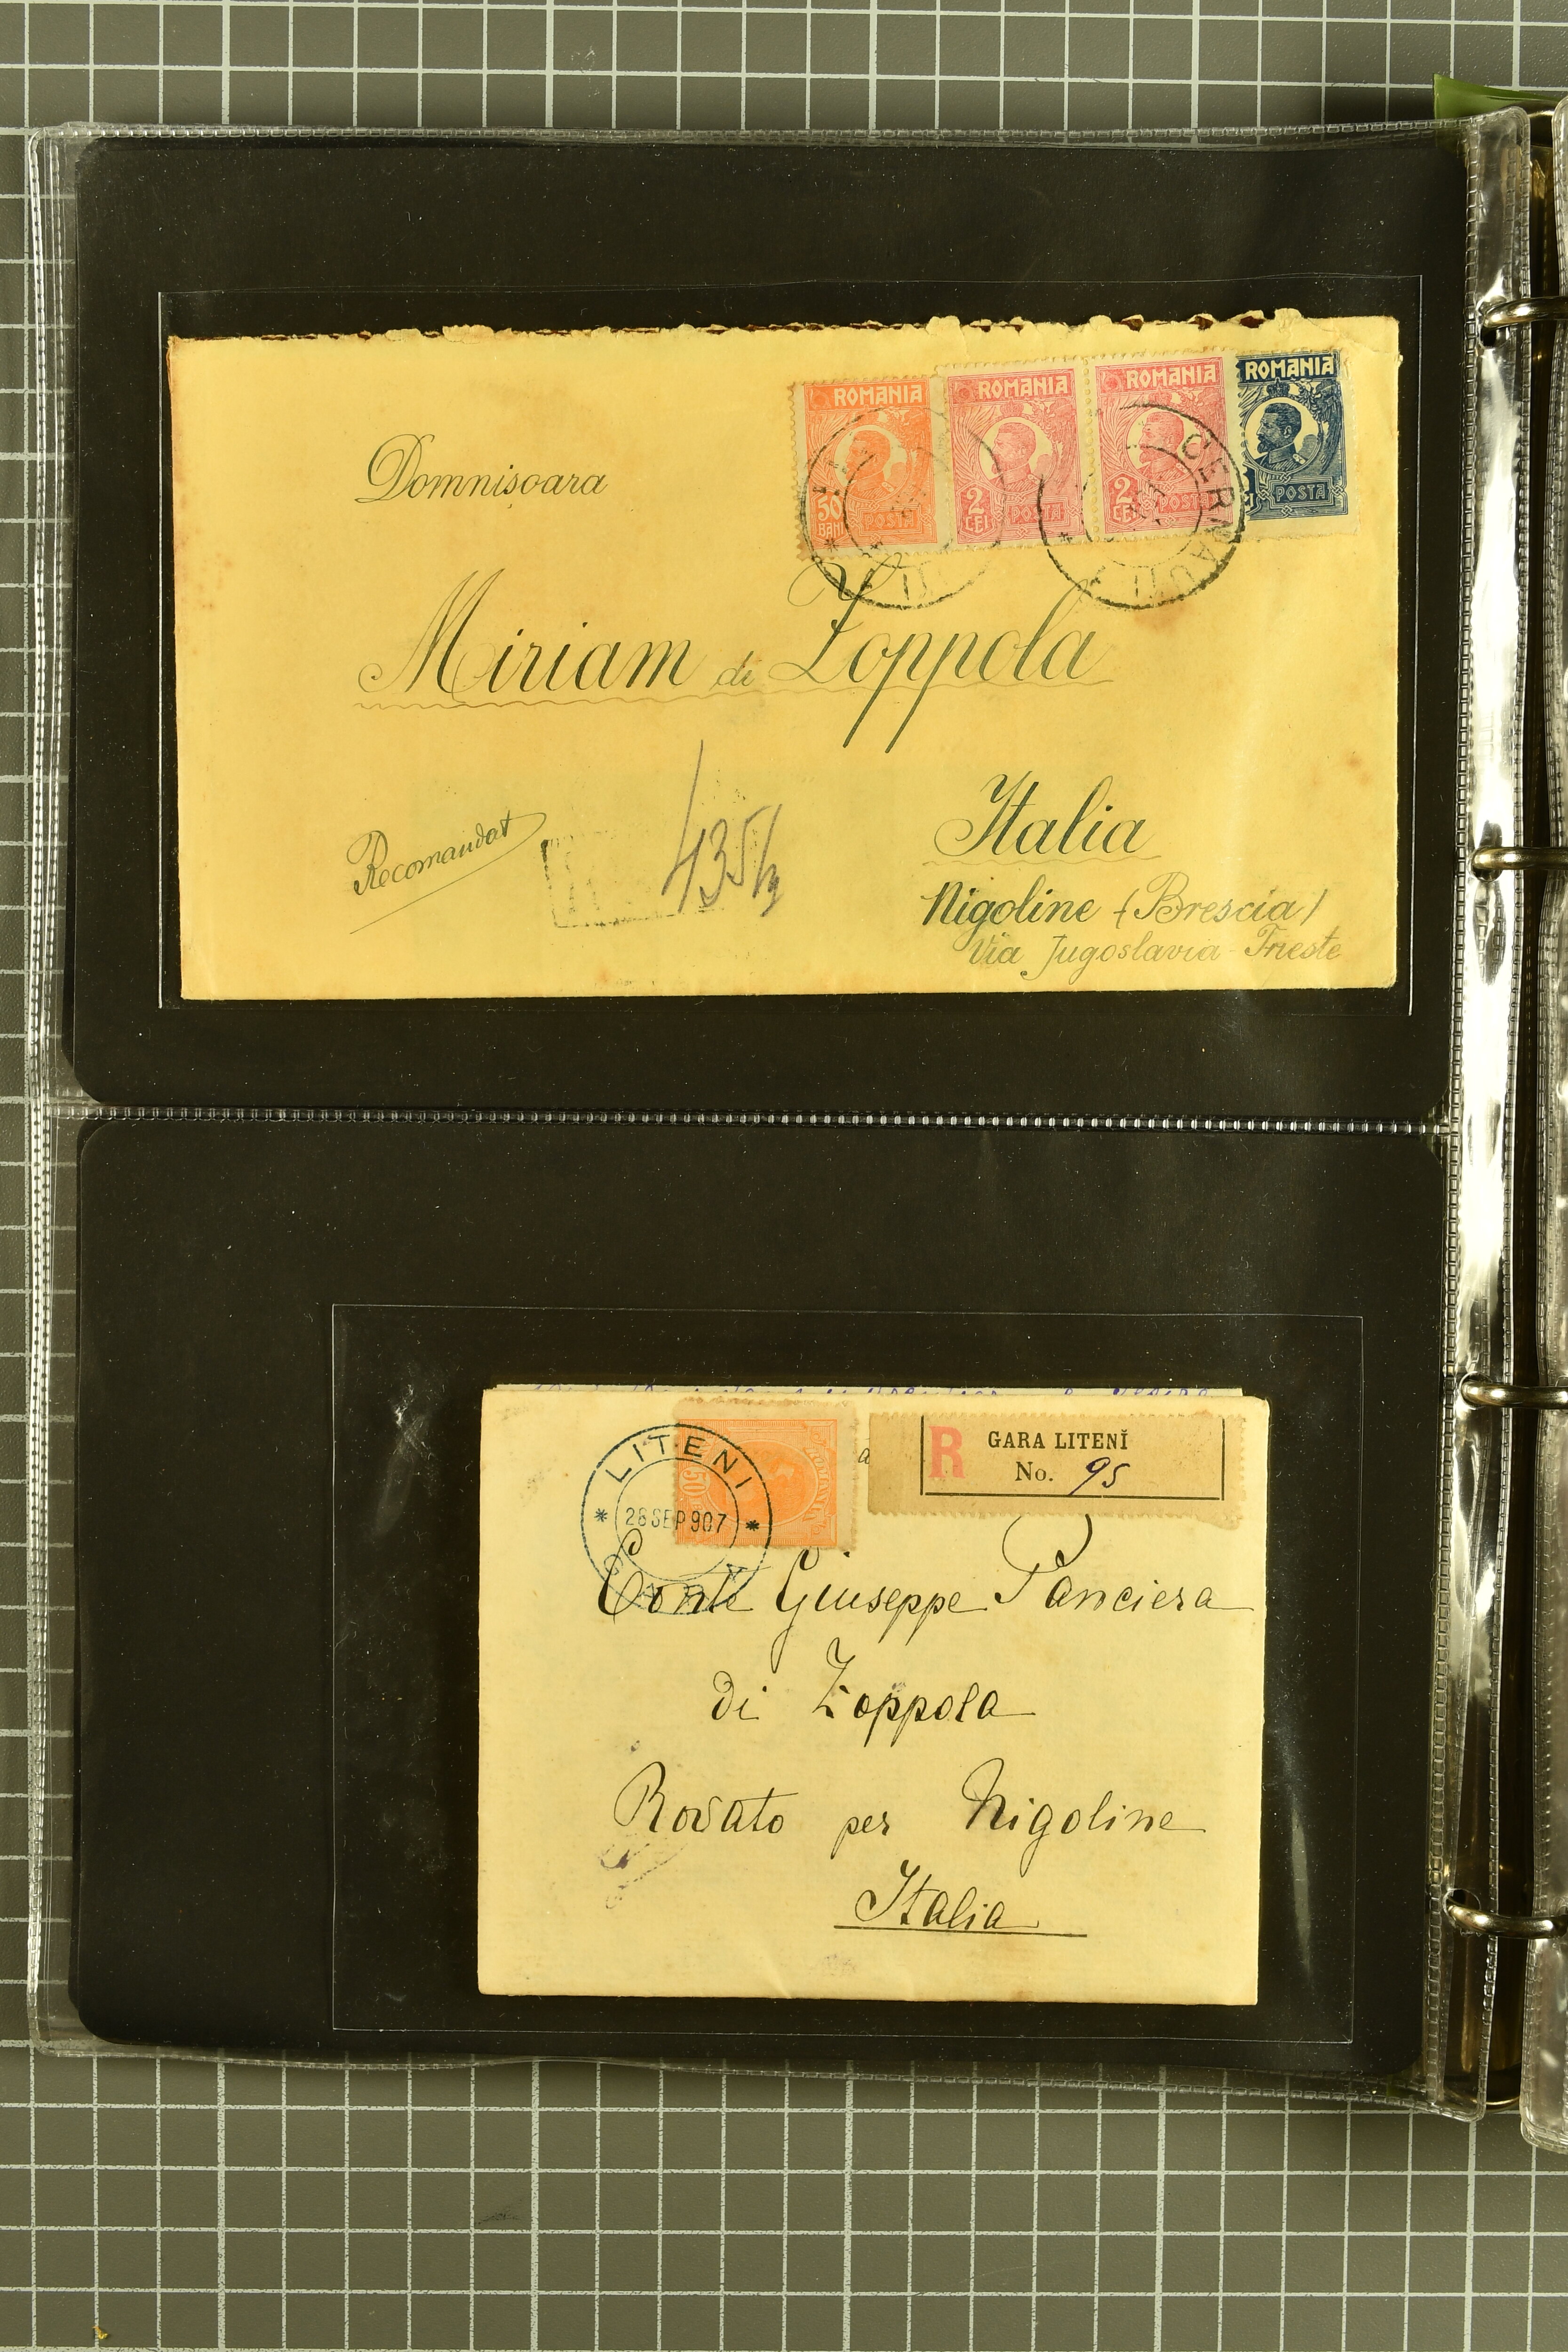 ROMANIA ROMANIA ROMANIA ROMANIA
50 BANI POSTA 2 LEI POSTA 2 LEI POSTA POSTA
CERNAUTI
Domnișoara
Miriam di Zoppola
Recomandat
Italia
Nigoline (Brescia)
Via Jugoslavia - Trieste
LITENI
26 SEP 907
50
ROMANIA
R GARA LITENĬ
No. 95
Conte Giuseppe Panciera
di Zoppola
Rovato per Nigoline
Italia